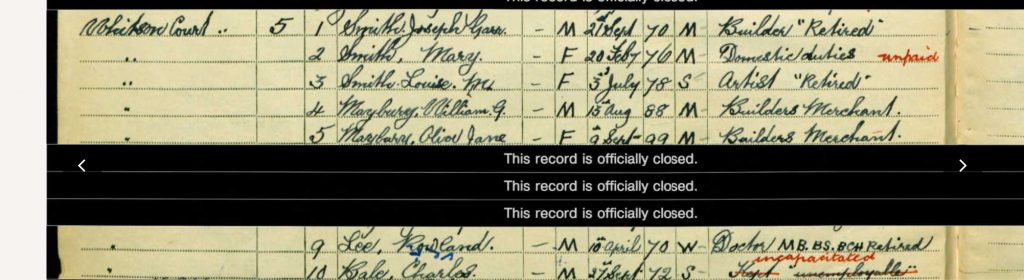 This record is officially closed.
Whitson Court " 5 1 Smith, Joseph Garr. - M 21st Sept 70 M Builder "Retired"
" 2 Smith, Mary. F 20 Feb 76 M Domestic duties unpaid
" 3 Smith Louise. M. - F 3rd July 78 S Artist "Retired"
" 4 Maybury, William G. - M 15 Aug 88 M Builders Merchant.
" 5 Maybury, Olive Jane - F 9th Sept 99 M Builders Merchant.
This record is officially closed.
This record is officially closed.
This record is officially closed.
" 9 Lee, Rowland. - M 10th April 70 W Doctor M B. BS. BCH Retired
incapacitated
" 10 Bale, Charles. - M 27 Sept 72 S unemployable